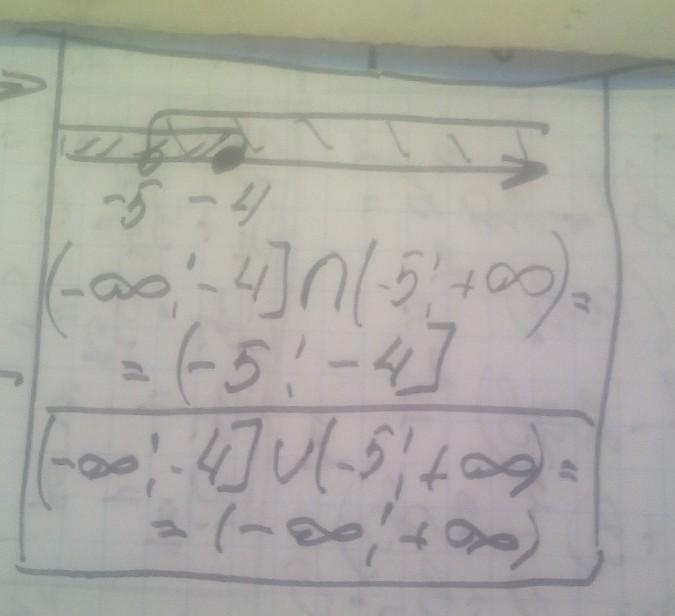 -5 -4
(-∞; -4] ∩ (-5; +∞) =
= (-5; -4]
(-∞; -4] ∪ (-5; +∞) =
= (-∞; +∞)